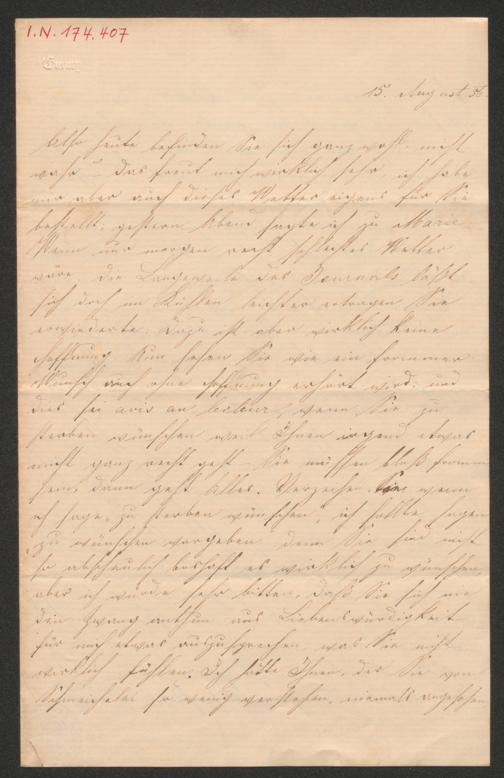 I.N. 174.407
15. August 56
Also heute befinden Sie sich ganz wohl, nicht
wahr – das freut mich wirklich sehr, ich habe
nun aber auch dieses Wetter eigens für Sie
bestellt, gestern Abend sagte ich zu Marie
Wenn nur morgen recht schlechtes Wetter
wäre die Langeweile des Journals läßt
sich doch im Kühlen leichter ertragen Sie
erwiederte: dazu ist aber wirklich keine
Hoffnung Nun sehen Sie wie ein frommer
Wunsch auch ohne Hoffnung erhört wird; und
dies sei avis an lecteur, wenn Sie zu
sterben wünschen weil Ihnen irgend etwas
nicht ganz recht geht – Sie müssen bloß fromm
sein, dann geht Alles. Verzeihen Sie wenn
ich sage, zu sterben wünschen, ich sollte sagen
zu wünschen vorgeben denn Sie sind nicht
so abscheulich boshaft es wirklich zu wünschen,
aber ich würde sehr bitten, daß Sie sich nie
den Zwang anthun aus Liebenswürdigkeit
für mich etwas auszusprechen, was Sie nicht
wirklich fühlen. Ich hätte Ihnen, der Sie von
Schmeichelei so wenig verstehen, niemals angesehen